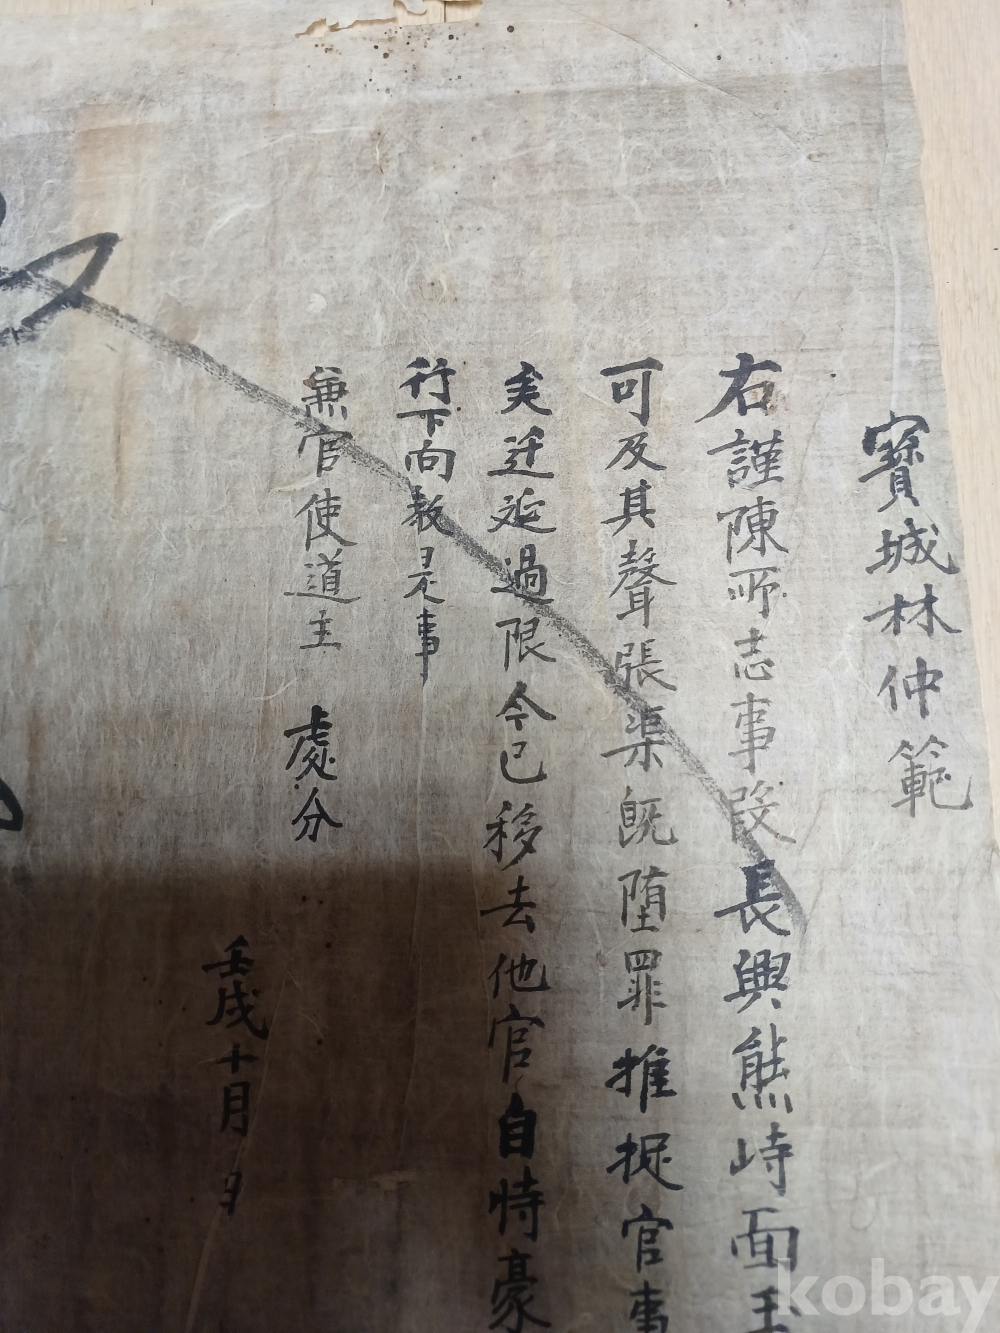 寶城林仲範
右謹陳所志事段長興熊峙面
可及其聲張渠旣墮罪推捉官事
矣迁延過限今已移去他官自恃豪
行下向敎是事
兼官使道主 處分
壬戌十月 日
kobay